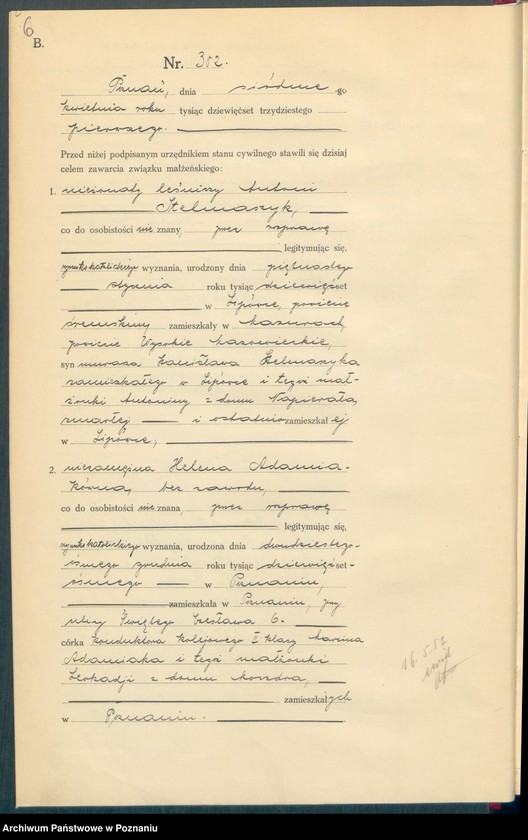 6
B.
Nr. 302.
Poznań, dnia siódme go
kwietnia roku tysiąc dziewięćset trzydziestego
pierwszego.
Przed niżej podpisanym urzędnikiem stanu cywilnego stawili się dzisiaj
celem zawarcia związku małżeńskiego:
1. nieżonaty leśniczy Antoni
Stelmaszyk,
co do osobistości nie znany, przez rozprawę
legitymując się,
rzymskokatolickiego wyznania, urodzony dnia piętnastego
stycznia roku tysiąc dziewięćset
w Lipówce, powiecie
śremskim, zamieszkały w Mazurach,
powiecie Wysokie Mazowieckie,
syn murarza Stanisława Stelmaszyka
zamieszkałego w Lipówce i tegoż mał-
żonki Antoniny z domu Napierała,
zmarłej i ostatnio zamieszkałej
w Lipówce,
2. niezamężna Helena Adamia-
kówna, bez zawodu,
co do osobistości nie znana, przez rozprawę
legitymując się,
rzymskokatolickiego wyznania, urodzona dnia dwudziestego-
ósmego grudnia roku tysiąc dziewięćset-
ósmego w Poznaniu,
zamieszkała w Poznaniu, przy
ulicy Świętego Czesława 6.
córka konduktora kolejowego I klasy Marcina
Adamiaka i tegoż małżonki
Leokadji z domu
zamieszkałych
w Poznaniu.
16.5.57
Archiwum Państwowe w Poznaniu